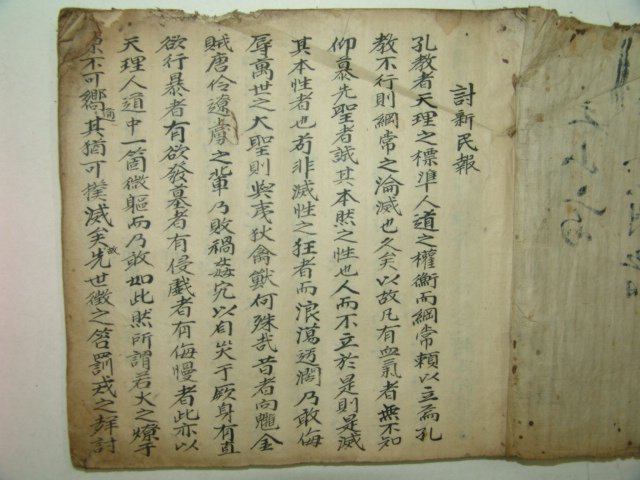 討新民報
孔教者天理之標準人道之權衡而綱常賴以立焉孔
教不行則綱常之淪滅也久矣以故凡有血氣者無不知
仰慕先聖者誠其本然之性也人而不立於是則是滅
其本性者也苟非滅性之狂者而浪蕩迂濶乃敢侮
辱萬世之大聖則與夷狄禽獸何殊哉昔者向魋金
賊唐伶遼虜之輩乃敗禍姦宄以自災于厥身有直
欲行暴者有欲發墓者有侵戲者有侮慢者此亦以
天理人道中一箇微軀而乃敢如此然所謂若火之燎于
原不可嚮邇其猶可撲滅矣故先世徵之笞罰戎之群討